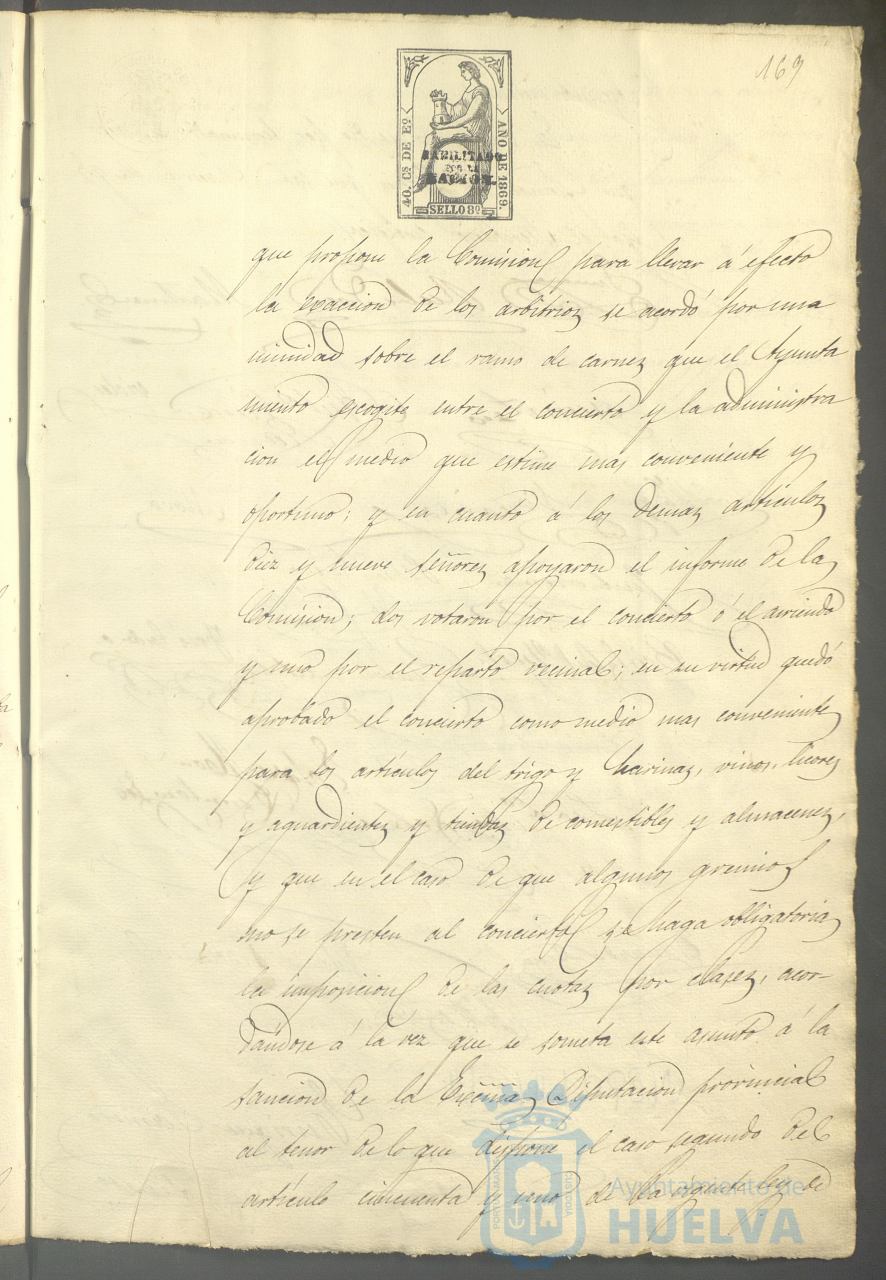 169
40. Cs DE Eº
AÑO DE 1869.
HABILITADO
POR LA
NACION.
SELLO 8º
que propone la Comision para llevar á efecto
la exaccion de los arbitrios se acordó por una
nimidad sobre el ramo de carnes que el Ayunta
miento escogite entre el concierto y la administra
cion el medio que estime mas conveniente y
oportuno; y en cuanto á los demas artículos
diez y nueve señores apoyaron el informe de la
Comision; dos votaron por el concierto ó el arriendo
y uno por el reparto vecinal; en su virtud quedó
aprobado el concierto como medio mas conveniente
para los artículos del trigo y harinas, vinos, licores
y aguardientes y tiendas de comestibles y almacenes,
y que en el caso de que algunos gremios
no se presten al concierto se haga obligatoria
la imposicion de las cuotas por clases, acor-
dándose á la vez que se someta este asunto á la
sancion de la Excma Diputacion provincial
al tenor de lo que dispone el caso segundo del
artículo cincuenta y uno de la vigente ley de
Ayuntamiento de
HUELVA